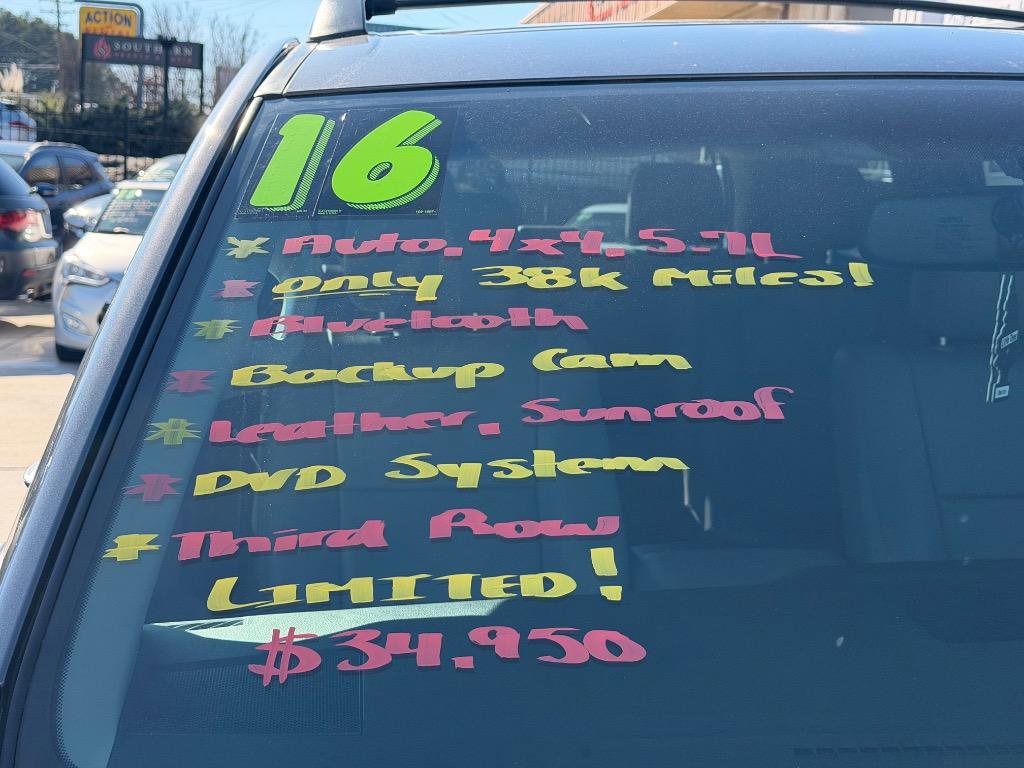 ACTION
SOUTHERN
16
* Auto, 4x4, 5.7L
* Only 38k Miles!
* Bluetooth
* Backup Cam
* Leather, Sunroof
* DVD System
* Third Row
LIMITED!
$34,950